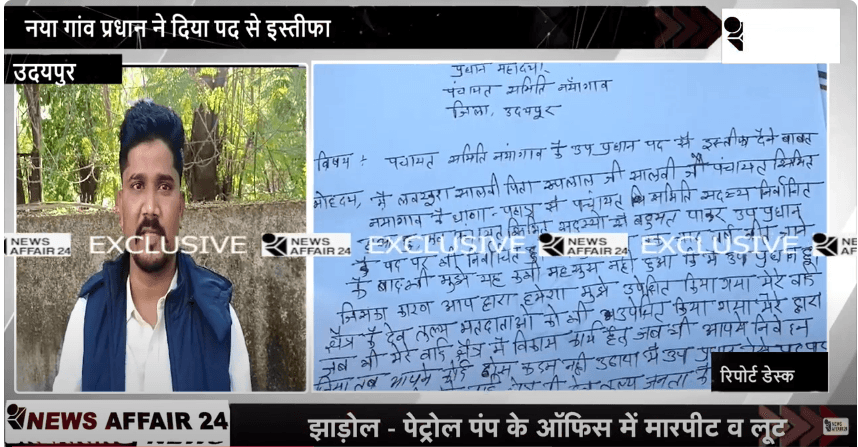 नया गांव प्रधान ने दिया पद से इस्तीफा
उदयपुर
प्रधान महोदया,
पंचायत समिति नयागांव
जिला, उदयपुर
विषय :- पंचायत समिति नयागांव के उप प्रधान पद से इस्तीफा देने बाबत
महोदय, मैं सालवी पिता रूपलाल जी सालवी जो पंचायत समिति
नयागांव के से पंचायत समिति सदस्य निर्वाचित
सदस्यों में बहुमत पाकर उप प्रधान
NEWS AFFAIR 24 EXCLUSIVE NEWS AFFAIR 24 EXCLUSIVE NEWS AFFAIR 24
के पद पर भी निर्वाचित
के बाद भी मुझे यह कभी महसूस नहीं हुआ कि मैं उप प्रधान हूँ
जिसका कारण आप द्वारा हमेशा मुझे उपेक्षित किया गया मेरे वार्ड
क्षेत्र के देव तुल्य मतदाताओं को भी उपेक्षित किया गया मेरे द्वारा
जब भी मेरे वार्ड क्षेत्र में विकास कार्य हेतु जब भी आपसे निवेदन
किया तब आपने कोई ठोस कदम नहीं उठाया मैं उप
रिपोर्ट डेस्क
NEWS AFFAIR 24
झाड़ोल - पेट्रोल पंप के ऑफिस में मारपीट व लूट
NEWS AFFAIR 24